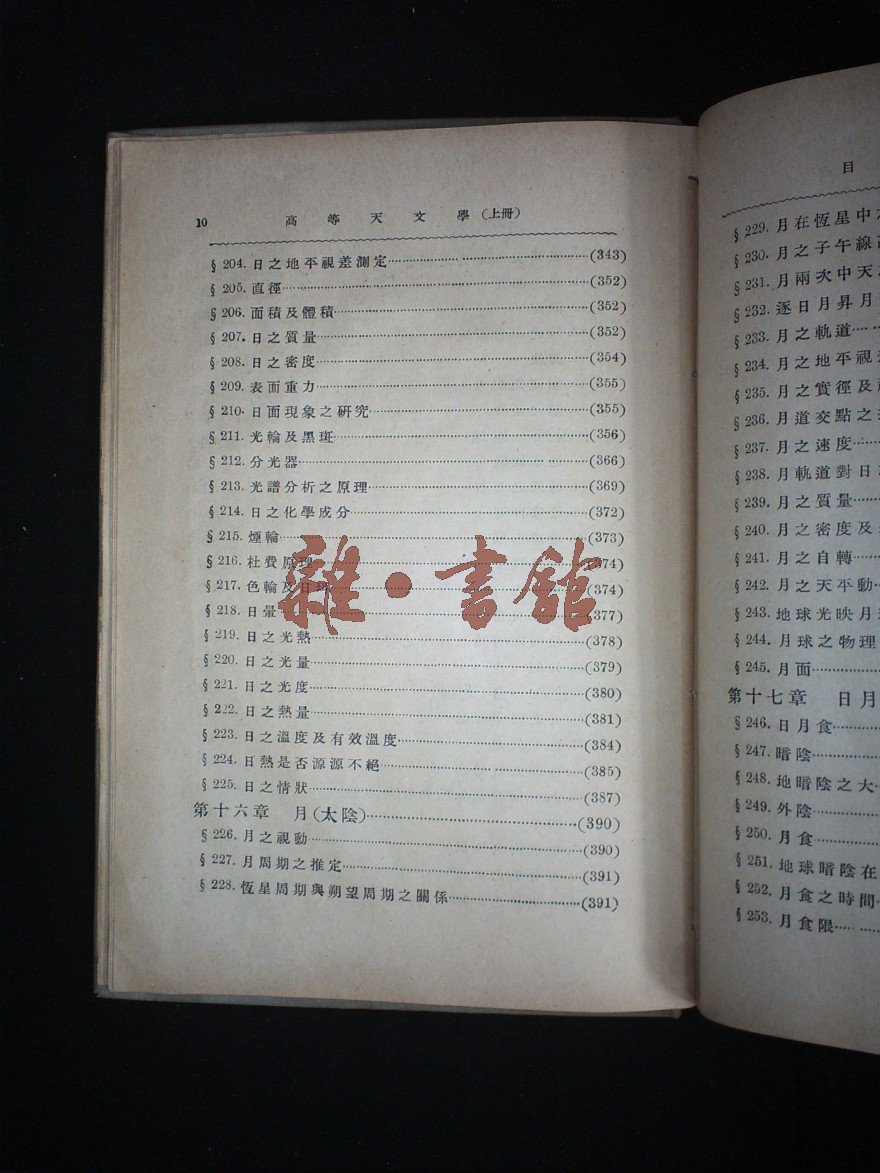 10 高等天文學(上冊)
§ 204. 日之地平視差測定……(343)
§ 205. 直徑……(352)
§ 206. 面積及體積……(352)
§ 207. 日之質量……(352)
§ 208. 日之密度……(354)
§ 209. 表面重力……(355)
§ 210. 日面現象之研究……(355)
§ 211. 光輪及黑斑……(356)
§ 212. 分光器……(366)
§ 213. 光譜分析之原理……(369)
§ 214. 日之化學成分……(372)
§ 215. 煙輪……(373)
§ 216. 杜費原理……(374)
§ 217. 色輪及日珥……(374)
§ 218. 日暈……(377)
§ 219. 日之光熱……(378)
§ 220. 日之光量……(379)
§ 221. 日之光度……(380)
§ 222. 日之熱量……(381)
§ 223. 日之溫度及有效溫度……(384)
§ 224. 日熱是否源源不絕……(385)
§ 225. 日之情狀……(387)
第十六章 月(太陰)……(390)
§ 226. 月之視動……(390)
§ 227. 月周期之推定……(391)
§ 228. 恆星周期與朔望周期之關係……(391)
雜·書館
目
§ 229. 月在恆星中
§ 230. 月之子午線
§ 231. 月兩次中天
§ 232. 逐日月昇月
§ 233. 月之軌道……
§ 234. 月之地平視
§ 235. 月之實徑及
§ 236. 月道交點之
§ 237. 月之速度……
§ 238. 月軌道對日
§ 239. 月之質量……
§ 240. 月之密度及
§ 241. 月之自轉……
§ 242. 月之天平動…
§ 243. 地球光映月
§ 244. 月球之物理
§ 245. 月面……
第十七章 日月
§ 246. 日月食……
§ 247. 暗陰……
§ 248. 地暗陰之大…
§ 249. 外陰……
§ 250. 月食……
§ 251. 地球暗陰在
§ 252. 月食之時間…
§ 253. 月食限……